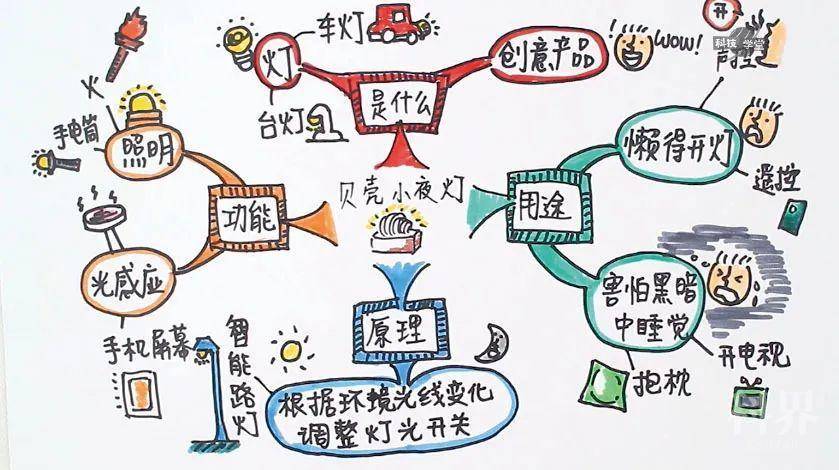 贝壳小夜灯
是什么
灯
车灯
台灯
创意产品
WOW!
科技 学堂
用途
懒得开灯
开
声控
遥控
害怕黑暗
中睡觉
抱枕
开电视
原理
根据环境光线变化
调整灯光开关
智能路灯
功能
照明
火
手电筒
光感应
手机屏幕